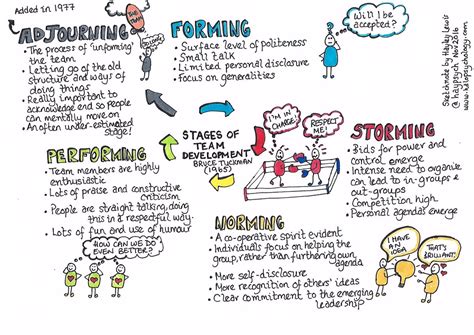 Added in 1977
ADJOURNING
• The process of 'unforming'
the team
• Letting go of the old
structure and ways of
doing things
• Really important to
acknowledge end so people
can mentally move on
• An often under-estimated
stage!
THE TEAM
FORMING
• Surface level of politeness
• Small talk
• Limited personal disclosure
• Focus on generalities
Will I be
accepted?
Sketchnote by Hayley Lewis
@halopsych Nov 2016
www.halopsychology.com
STAGES OF
TEAM
DEVELOPMENT
BRUCE TUCKMAN
(1965)
I'M IN
CHARGE!
RESPECT
ME!
STORMING
• Bids for power and
control emerge
• Intense need to organise
can lead to in-groups &
out-groups
• Competition high
• Personal agendas emerge
PERFORMING
• Team members are highly
enthusiastic
• Lots of praise and constructive
criticism
• People are straight talking, doing
this in a respectful way
• Lots of fun and use of humour
HOW CAN WE DO
EVEN BETTER?
NORMING
• A co-operative spirit evident
• Individuals focus on helping the
group, rather than furthering own
agenda
• More self-disclosure
• More recognition of others' ideas
• Clear commitment to the emerging
leadership
I HAVE
AN IDEA
THAT'S
BRILLIANT!